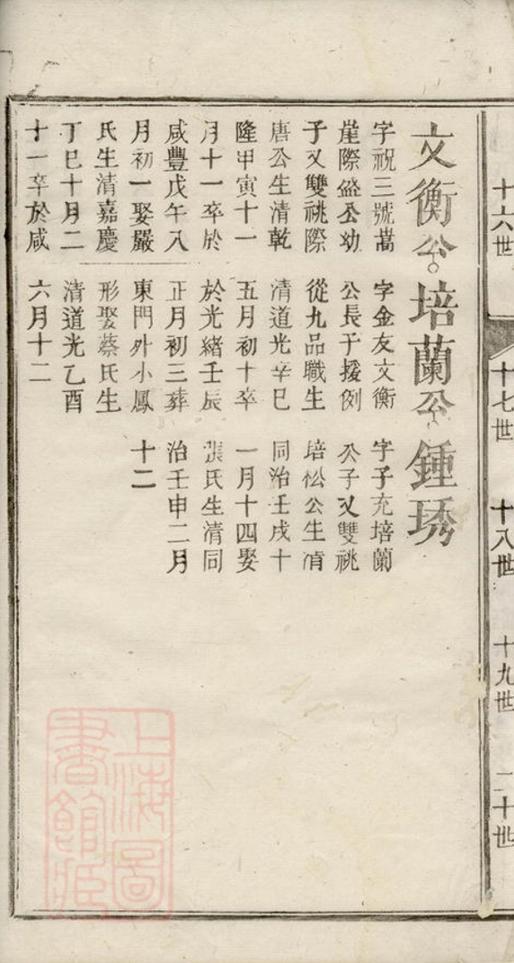 十六世
十七世
十八世
十九世
二十世
文衡公
字祝三號蒿
崖際盛公幼
子又雙祧際
唐公生清乾
隆甲寅十一
月十一卒於
咸豐戊午八
月初一娶嚴
氏生清嘉慶
丁巳十月二
十一卒於咸
培蘭公
字金友文衡
公長子援例
從九品職生
清道光辛巳
五月初十卒
於光緒壬辰
正月初三葬
東門外小鳳
形娶蔡氏生
清道光乙酉
六月十二
鍾琇
字子充培蘭
公子又雙祧
培松公生清
同治壬戌十
一月十四娶
張氏生清同
治壬申二月
十二
上海圖
書館藏